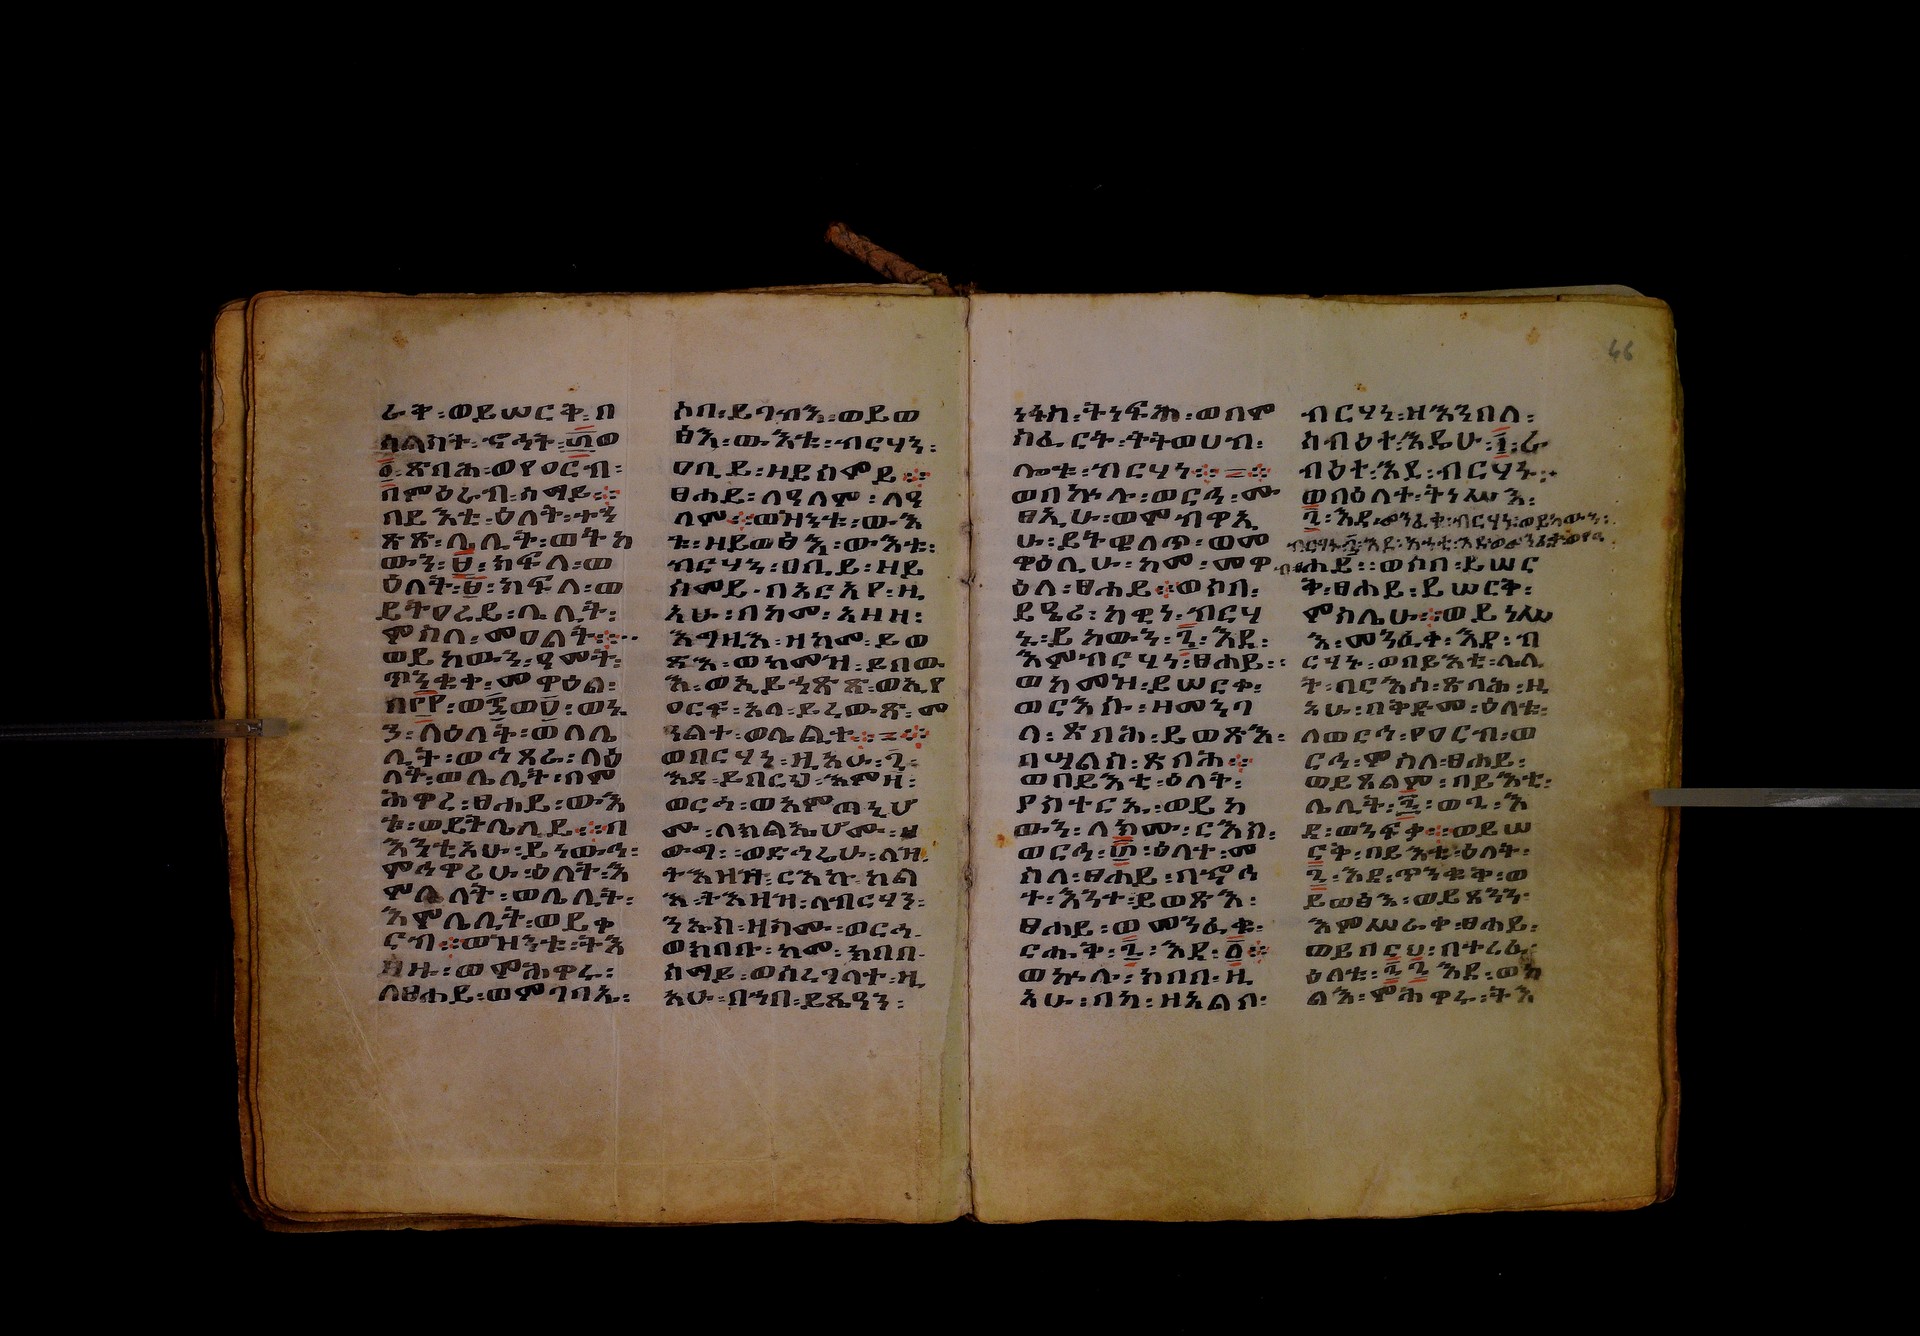 ራቅ፡ወይሠርቅ፡በ
ሰልስት፡ኆኅት፡፴ወ
፩፡ጽባሕ፡ወየዐርብ፡
በምዕራብ፡ሰማይ፨
በይእቲ፡ዕለት፡ተኀ
ጽጽ፡ሌሊት፡ወትከ
ውን፡፱፡ክፍለ፡ወ
ዕለት፡፱፡ክፍለ፡ወ
ይትዐረይ፡ሌሊት፡
ምስለ፡መዐልት፨
ወይከውን፡ዓመት፡
ጥንቁቀ፡መዋዕል፡
በ፫፻፡ወ፷ወ፬፡ወኑ
ኀ፡ለዕለት፡ወለሌ
ሊት፡ወኅጸራ፡ለዕ
ለት፡ወሌሊት፡በም
ሕዋረ፡ፀሐይ፡ውእ
ቱ፡ወይትሌለይ፨በ
እንቲአሁ፡ይነውኅ፡
ምኅዋሪሁ፡ዕለት፡እ
ምዕለት፡ወሌሊት፡
እምሌሊት፡ወይቀ
ርብ፨ወዝንቱ፡ትእ
ዛዙ፡ወምሕዋሩ፡
ለፀሐይ፡ወምግባኢ፡
ሶበ፡ይገብእ፡ወይወ
ፅእ፡ውእቱ፡ብርሃን፡
ዐቢይ፡ዘይሰምይ፨
ፀሐይ፡ለዓለም፡ለዓ
ለም፨ወዝንቱ፡ውእ
ቱ፡ዘይወፅእ፡ውእቱ፡
ብርሃን፡ዐቢይ፡ዘይ
ሰመይ፡በአርአየ፡ዚ
አሁ፡በከመ፡አዘዘ፡
እግዚእ፡ዘከመ፡ይወ
ጽእ፡ወከመዝ፡ይበው
እ፡ወኢይኀጽጽ፡ወኢየ
ዐርፍ፡አላ፡ይረውጽ፡መ
ዓልተ፡ወሌሊተ፨
ወብርሃኑ፡ዚአሁ፡፯፡
እደ፡ይበርህ፡እምዘ፡
ወርኅ፡ወአምጣኒሆ
ሙ፡ለክልኤሆሙ፡
ወድኅሬሁ፡ለዝ
ትእዛዝ፡ርኢኩ፡ካል
አ፡ትእዛዝ፡ለብርሃን፡
ንኡስ፡ዘስሙ፡ወርኅ፡
ወክበቡ፡ከመ፡ክበበ፡
ሰማይ፡ወሰረገላት፡ዚ
አሁ፡በኀበ፡ይጼዓን፡
46
ነፋስ፡ትነፍሕ፡ወበም
ስፈርት፡ትትወሀብ፡
ሎቱ፡ብርሃን፨=፨
ወበኵሉ፡ወርኅ፡ሙ
ፀኢሁ፡ወምብዋኢ
ሁ፡ይትዌለጥ፡ወመ
ዋዕሊሁ፡ከመ፡መዋ
ዕለ፡ፀሐይ፨ወሶበ፡
ይዔሪ፡ከዊነ፡ብርሃ
ኑ፡ይከውን፡፯፡እደ፡
እምብርሃነ፡ፀሐይ፡
ወከመዝ፡ይሠርቀ፡
ወርእሱ፡ዘመንገ
ለ፡ጽባሕ፡ይወጽእ፡
በሣልስ፡ጽባሕ፨
ወበይእቲ፡ዕለት፡
ያስተርኢ፡ወይከ
ውን፡ለክሙ፡ርእሰ፡
ወርኅ፡፴፡ዕለተ፡ም
ስለ፡ፀሐይ፡በኆኅ
ት፡እንተ፡ይወጽእ፡
ፀሐይ፡ወመንፈቁ፡
ርሑቅ፡፯፡እደ፡፩፨
ወኵሉ፡ክበበ፡ዚ
አሁ፡በከ፡ዘአልቦ፡
ብርሃነ፡ዘእንበለ፡
ስብዕተ፡እዴሁ፡፲፡ራ
ብዕተ፡እደ፡ብርሃኑ፨
ወበዕለተ፡ትነሥእ፡
፯፡እደ፡መንፈቀ፡ብርሃኑ፡ወይከውን፡
ፀሐይ፡፡ወሶበ፡ይሠር
ቅ፡ፀሐይ፡ይሠርቅ፡
ምስሌሁ፨ወይነሥ
እ፡መንፈቀ፡እደ፡ብ
ርሃኑ፡ወበይእቲ፡ሌሊ
ት፡በርእሰ፡ጽባሕ፡ዚ
አሁ፡በቅድመ፡ዕለቱ፡
ለወርኅ፡የዐርብ፡ወ
ርኅ፡ምስለ፡ፀሐይ፡
ወይጸልም፡በይእቲ፡
ሌሊት፡፯፡ወ፯፡እ
ደ፡ወንፍቀ፨ወይሠ
ርቅ፡በይእቲ፡ዕለት፡
፯፡እደ፡ጥንቁቅ፡ወ
ይወፅእ፡ወይጸንን፡
እምሥራቀ፡ፀሐይ፡
ወይበርህ፡በተረፈ፡
ዕለቱ፡፯፯እደ፡ወካ
ልእ፡ምሕዋሩ፡ትእ